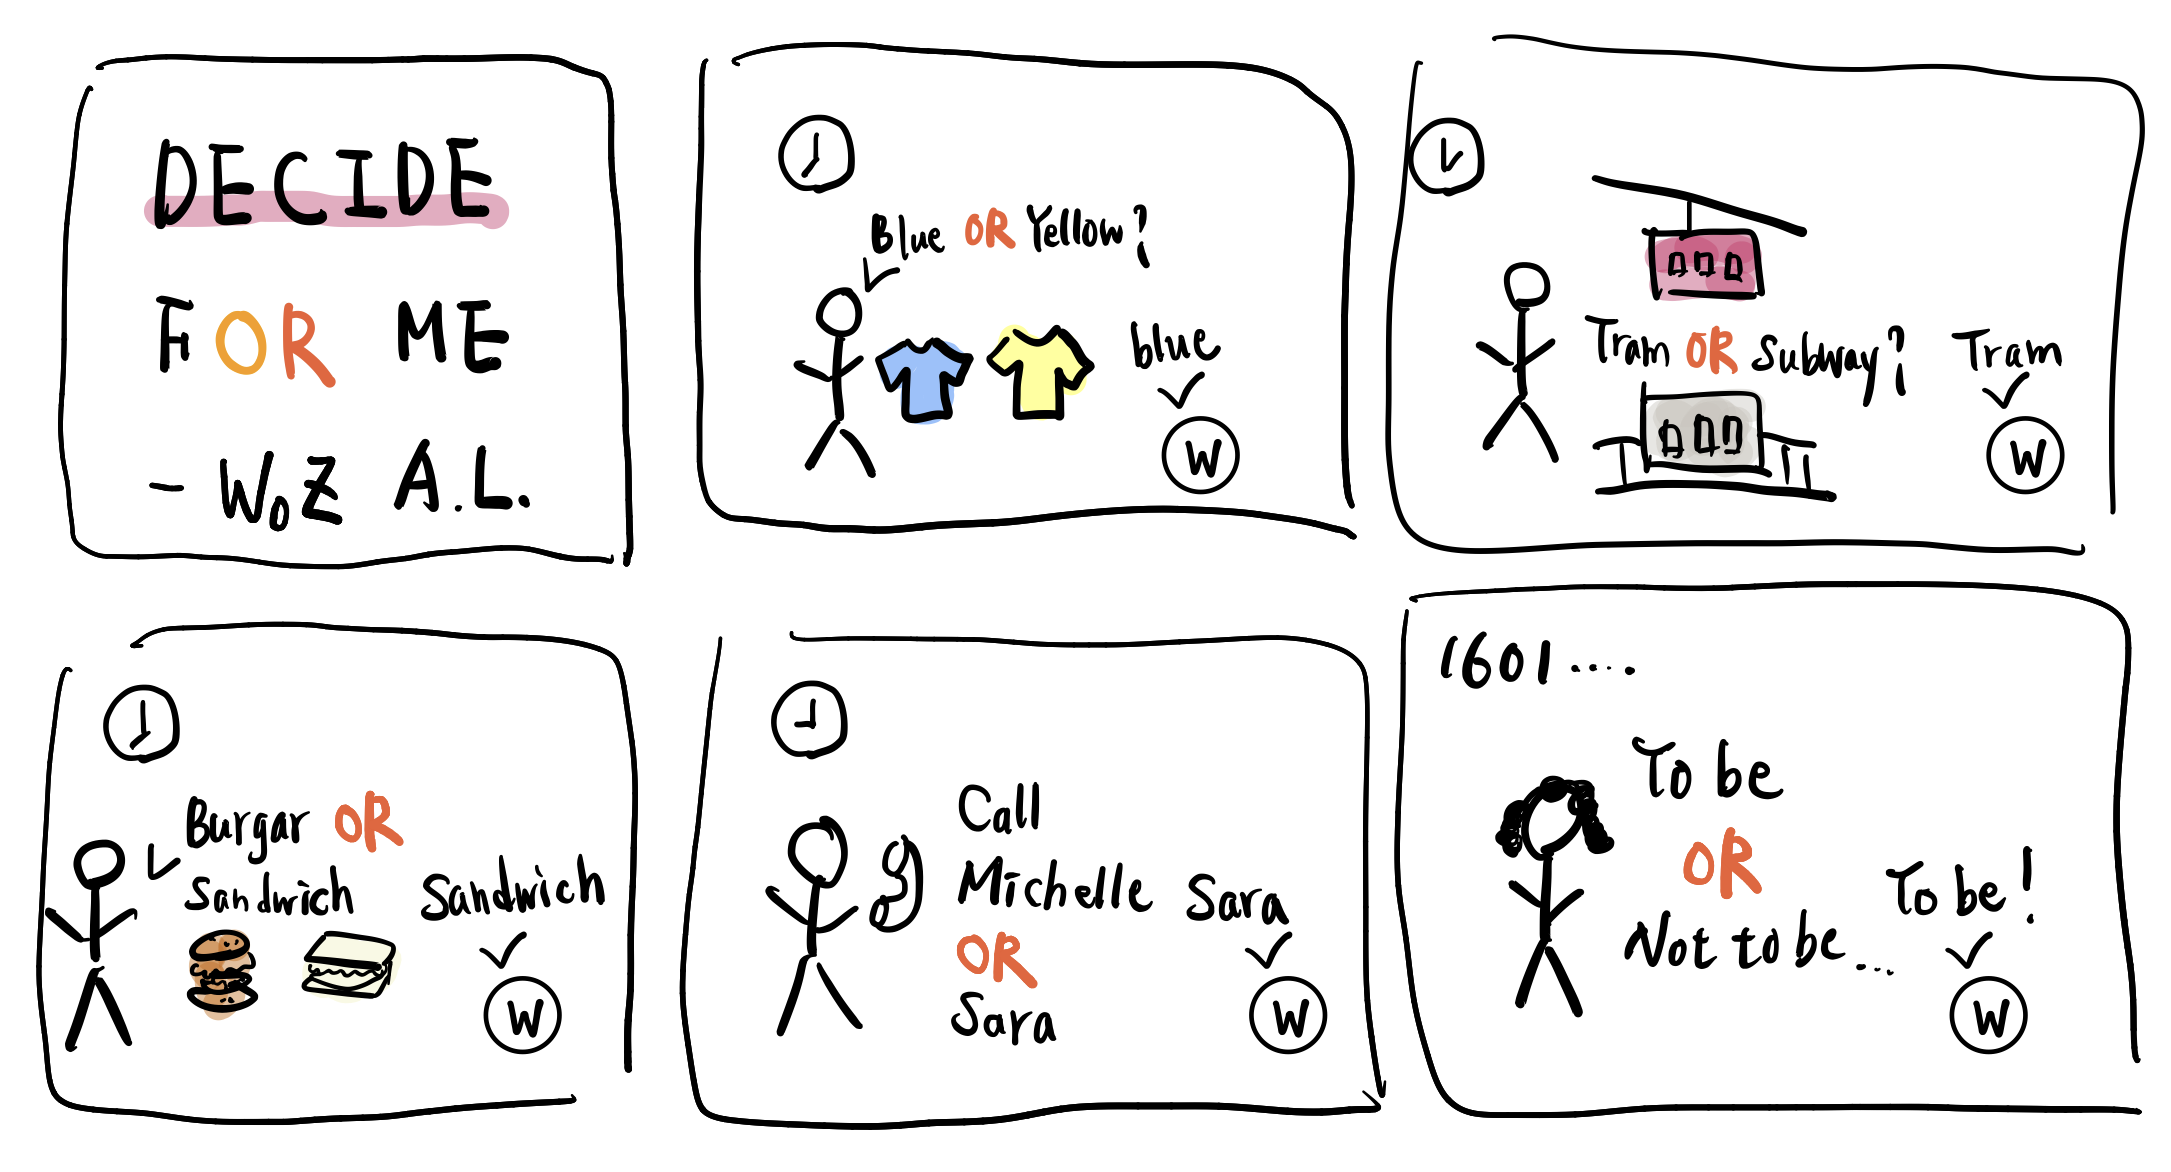 DECIDE
FOR ME
- WoZ A.L.
Blue OR Yellow?
blue
W
Tram OR Subway?
Tram
W
Burgar OR
Sandwich
Sandwich
W
Call
Michelle
OR
Sara
Sara
W
1601.....
To be
OR
Not to be...
To be!
W